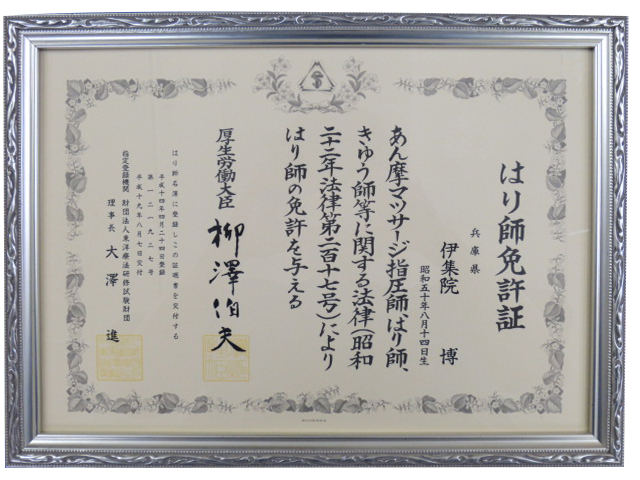 はり師免許証
兵庫県
伊集院 博
昭和五十年八月十四日生
あん摩マツサージ指圧師、はり師、
きゆう師等に関する法律(昭和
二十二年法律第二百十七号)により
はり師の免許を与える
厚生労働大臣 柳澤伯夫
はり師名簿に登録しこの証明書を交付する
平成十四年四月二十四日登録
第一二一九二七号
平成十九年八月七日交付
指定登録機関 財団法人東洋療法研修試験財団
理事長 大澤 進